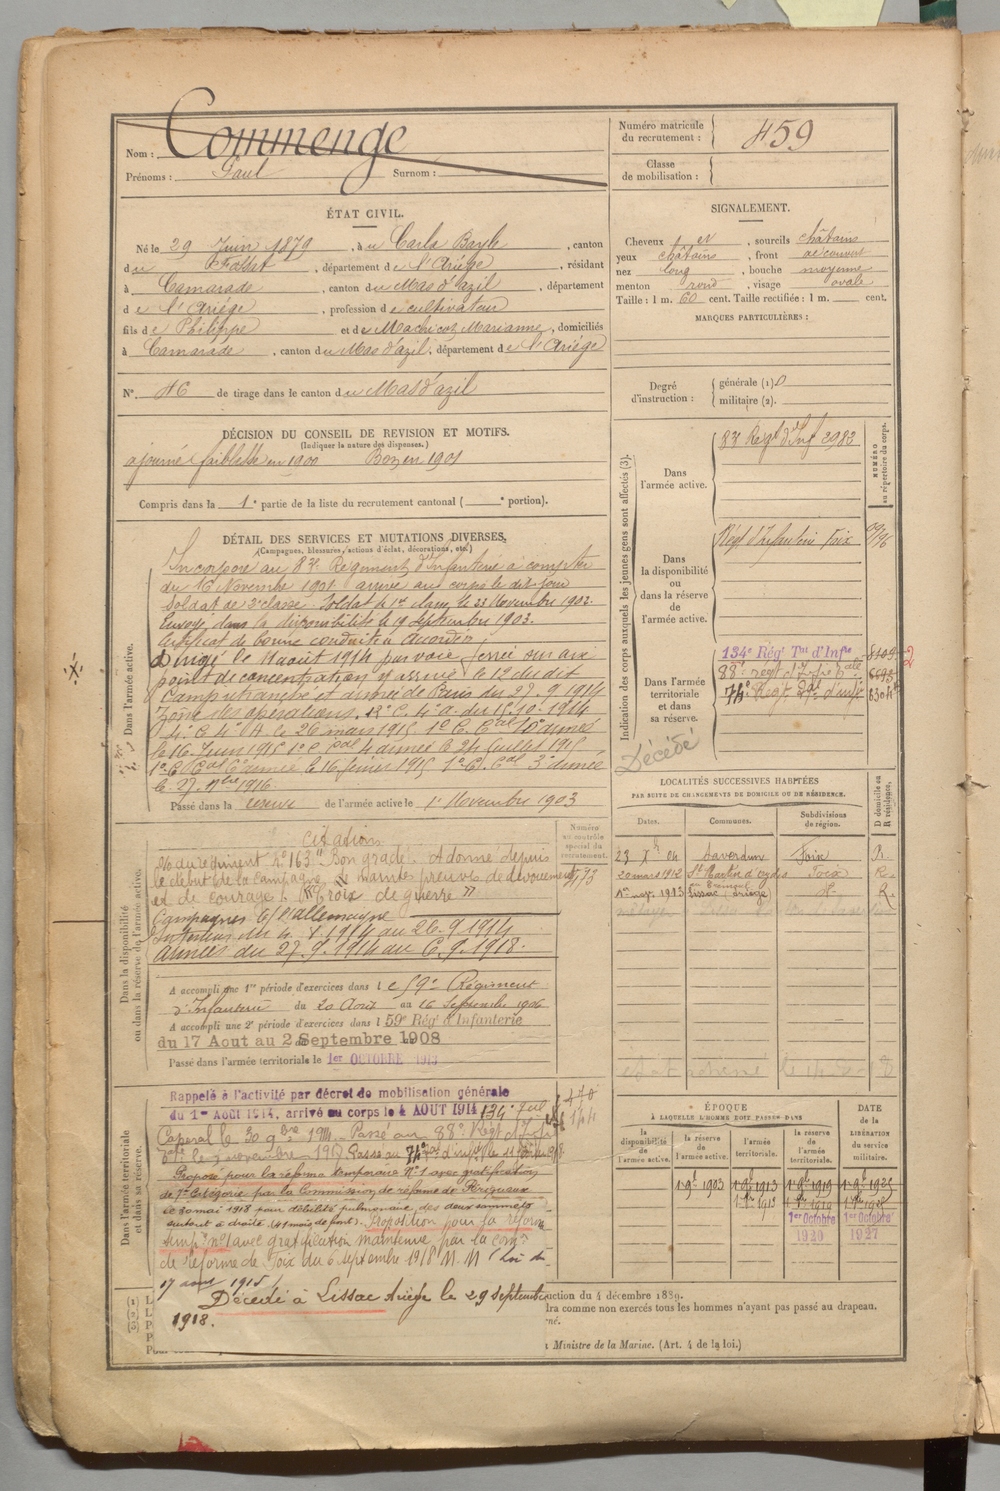 Nom : Commenge
Prénoms : Paul Surnom :
Numéro matricule du recrutement : 459
Classe de mobilisation :
ÉTAT CIVIL.
Né le 29 Juin 1879, à u Carla Bayle, canton
du Fossat, département de l'Ariége, résidant
à Camarade, canton du Mas d'azil, département
de l'Ariége, profession de cultivateur
fils de Philippe et de Machicot Marianne, domiciliés
à Camarade, canton du Mas d'azil, département de l'Ariége
N° 46 de tirage dans le canton du Mas d'azil
SIGNALEMENT.
Cheveux et, sourcils châtains
yeux châtains, front découvert
nez long, bouche moyenne
menton rond, visage ovale
Taille : 1 m. 60 cent. Taille rectifiée : 1 m. cent.
MARQUES PARTICULIÈRES :
Degré d'instruction : générale (1) 0
militaire (2).
DÉCISION DU CONSEIL DE REVISION ET MOTIFS.
(Indiquer la nature des dispenses.)
ajourné faiblesse en 1900 Bon en 1901
Compris dans la 1e partie de la liste du recrutement cantonal ( e portion).
DÉTAIL DES SERVICES ET MUTATIONS DIVERSES.
(Campagnes, blessures, actions d'éclat, décorations, etc.)
Dans l'armée active.
Incorporé au 83e Regiment d'Infanterie à compter
du 16 Novembre 1901 arrivé au corps le dit jour
Soldat de 2e classe. Soldat de 1re classe le 23 Novembre 1902.
Envoyé dans la disponibilité le 19 Septembre 1903.
Certificat de bonne conduite accordé.
Dirigé le 11 août 1914 par voie ferrée sur un
point de concentration y arrivé le 12 du dit
Camp retranché et armée de Paris du 27.9.1914
Zone des opérations. 12e C. 4e a. du 15.10.1914
4e C. 4e A. le 26 mars 1915 1e C. Cal 10e armée
le 16 Juin 1915 1e C Cal 4 armée le 24 Juillet 1915
1e C Cal 6e armée le 16 février 1915 1e C. Cal 3e armée
le 27. 1916
Passé dans la réserve de l'armée active le 1er Novembre 1903
Indication des corps auxquels les jeunes gens sont affectés (3).
NUMÉRO au répertoire du corps.
Dans l'armée active.
83e Régt d'Inf 2983
Dans la disponibilité ou dans la réserve de l'armée active.
Régt d'Infanterie Foix
Dans l'armée territoriale et dans sa réserve.
134e Rég Tal d'Infie 8109
88e regt d'Inf
74e Régt d'inf 8304
Décédé
LOCALITÉS SUCCESSIVES HABITÉES
PAR SUITE DE CHANGEMENTS DE DOMICILE OU DE RÉSIDENCE.
Dates. Communes. Subdivisions de région. D domicile ou R résidence.
23 Xbre 04 Saverdun Foix R.
20 mars 1912 St Martin d'oydes Foix R.
1er nov. 1913 Lissac (Ariège) R.
Dans la disponibilité ou dans la réserve de l'armée active.
Numéro au contrôle spécial du recrutement.
Citation
du régiment n° 163 "Bon gradé. A donné depuis
le début de la campagne de maintes preuves de dévouement
et de courage." (Croix de guerre)
Campagnes c/ l'allemagne
Intérieur du 4 1914 au 26.9.1914
Armées du 27.9.1914 au 6.9.1918.
A accompli une 1re période d'exercices dans le 59e Régiment
d'Infanterie du 20 Août au 16 Septembre 1906
A accompli une 2e période d'exercices dans l 59e Rég d'Infanterie
du 17 Aout au 2 Septembre 1908
Passé dans l'armée territoriale le 1er OCTOBRE 1913
Dans l'armée territoriale et dans sa réserve.
Rappelé à l'activité par décret de mobilisation générale
du 1er Août 1914, arrivé au corps le 4 AOUT 1914 134e
Caporal le 30 9bre 1914. Passé au 88e Régt d'Inf
le 7 novembre 1917 Passé au 74e d'inf le 11
Proposé pour la réforme temporaire N°1 avec gratification
de 7e Catégorie par la Commission de réforme de Périgueux
le 30 mai 1918 pour débilité pulmonaire des deux sommets
surtout à droite (41 mois de front). Proposition pour la réforme
temp. n°1 avec gratification maintenue par la com.
de réforme de Foix du 6 septembre 1918 (Loi du
17 aout 1915)
Décédé à Lissac Ariège le 29 Septembre
1918.
ÉPOQUE
À LAQUELLE L'HOMME DOIT PASSER DANS
la disponibilité de l'armée active. la réserve de l'armée active. l'armée territoriale. la réserve de l'armée territoriale.
DATE DE LA LIBÉRATION du service militaire.
1 9e 1903 1 9e 1913 1 9e 1919 1 9e 1925
1er Octobre 1920 1er Octobre 1927
uction du 4 décembre 1889.
dra comme non exercés tous les hommes n'ayant pas passé au drapeau.
né.
Ministre de la Marine. (Art. 4 de la loi.)